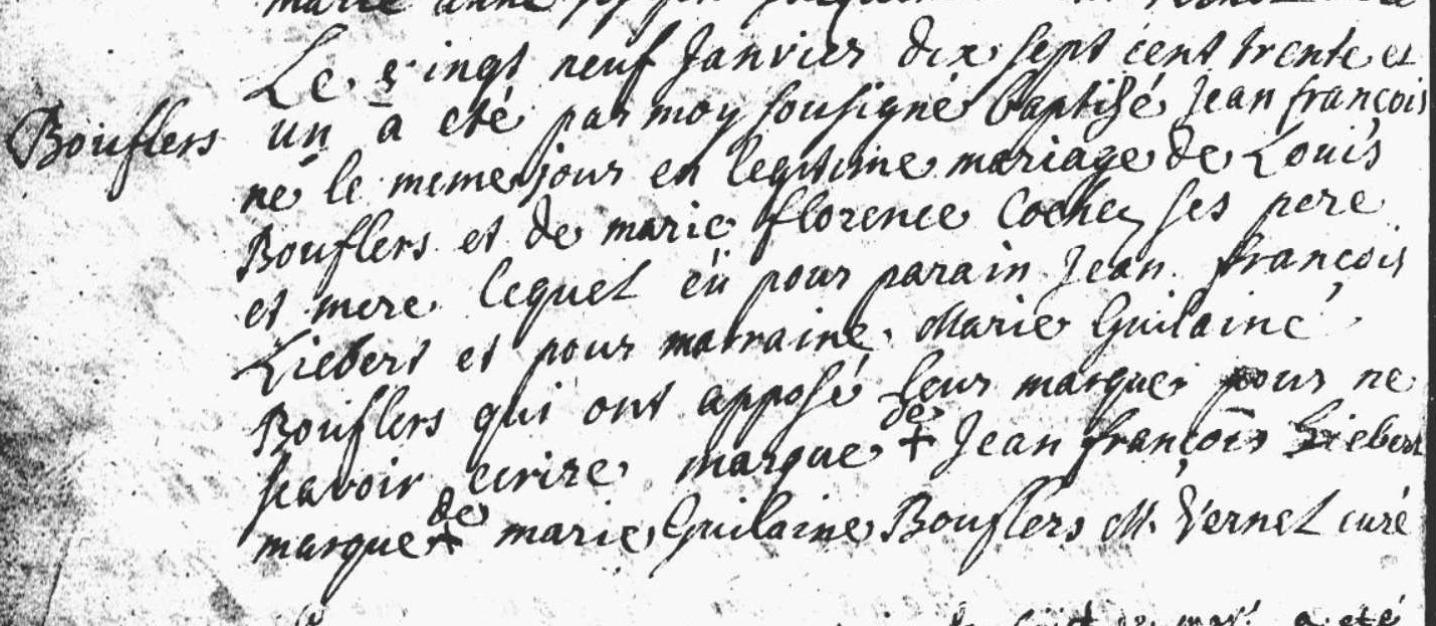 marie anne
Le vingt neuf Janvier dix sept cent trente et
Bouflers
un a eté par moy sousigné baptisé Jean françois
né le meme jour en legitime mariage de Louis
Bouflers et de marie florence Cochez ses pere
et mere lequel eü pour parain Jean françois
Liebert et pour marraine Marie Guilaine
Bouflers qui ont apposé leur marque pour ne
scavoir ecrire marque de + Jean françois Liebert
marque de + marie Guilaine Bouflers M. Vernet curé
a eté